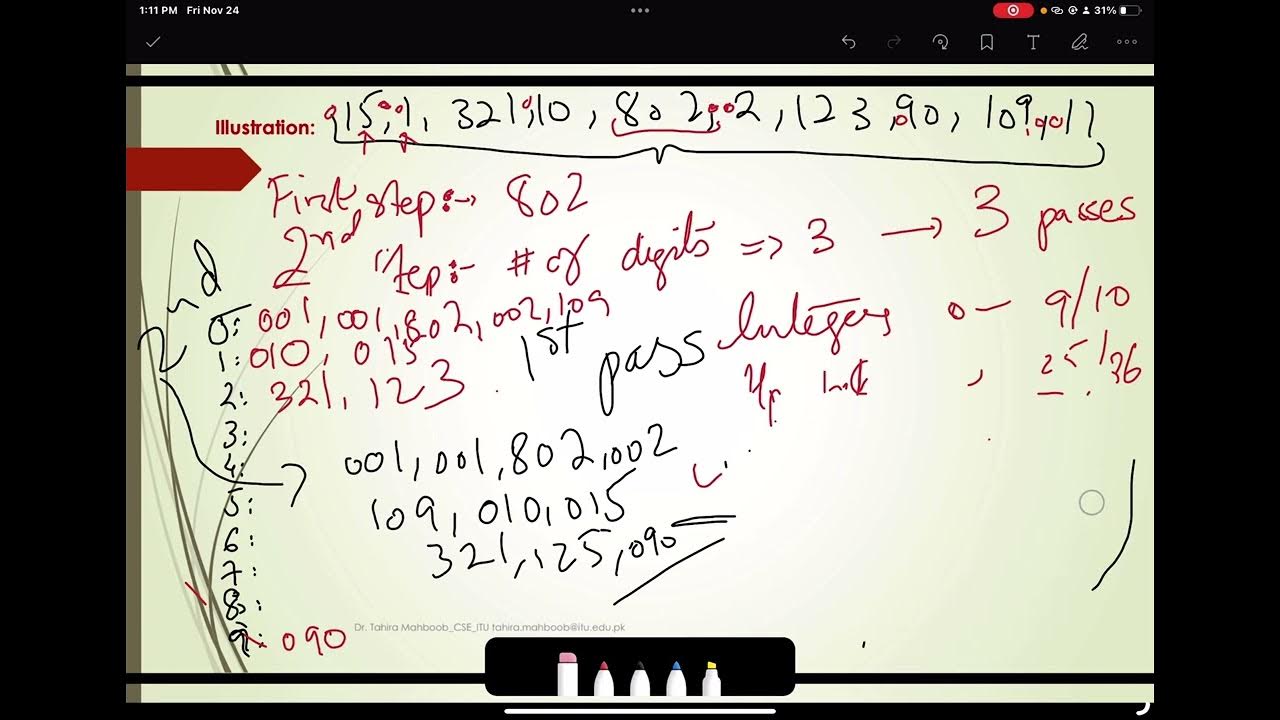 1:11 PM Fri Nov 24
31%
Illustration: 015,001, 321,010, 802,002, 123,090, 109,001
First step:→ 802
2nd step:- # of digits => 3 → 3 passes
2nd
0: 001, 001, 802, 002, 109
1: 010, 015
2: 321, 123
1st pass
Integers 0 - 9/10
25/36
3:
4:
5:
6:
7:
8:
9: 090
001, 001, 802, 002
109, 010, 015
321, 125, 090
Dr. Tahira Mahboob_CSE_ITU tahira.mahboob@itu.edu.pk